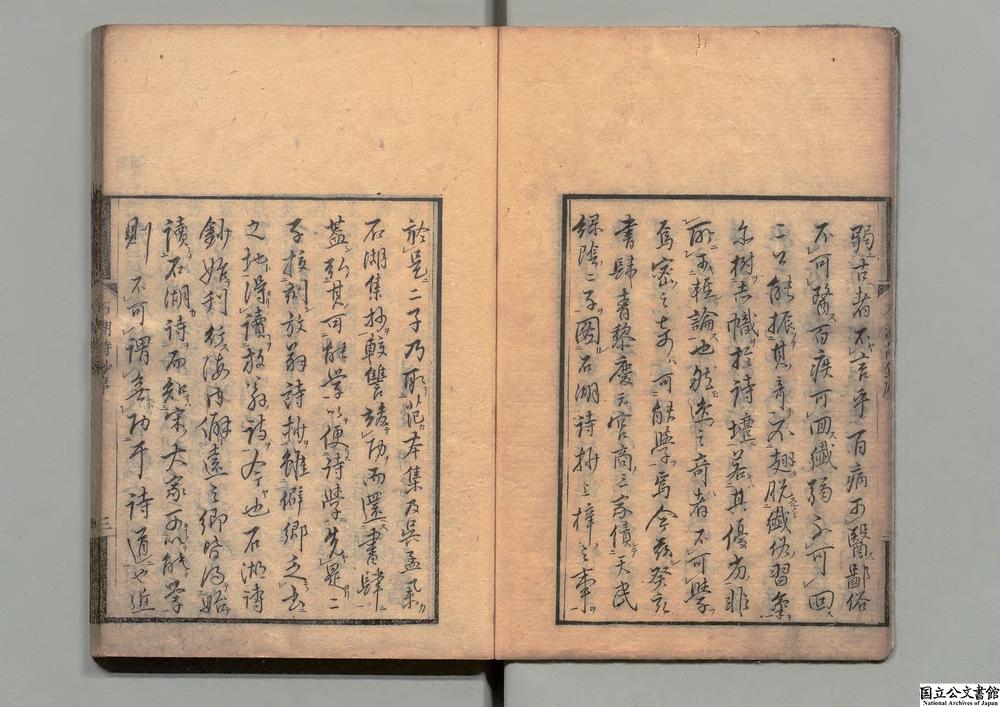 弱古者不言乎百病可醫鄙俗
不可醫百疾可回纖弱不可回
二公能振其音不翅脱纖仍習氣
尓樹赤幟於詩壇若其優劣非
所可輕論也然吳之奇者不可學
寫密之奇可能學焉今茲癸亥
書肆青藜慶元宮商三家倩天民
緑陰二子圖石湖詩抄上梓之事
於是二子乃取小冊本集及吳孟舉
石湖集抄較讐竣功而還書肆
蓋欲其可能學以便詩學先是二
子校刻放翁詩抄雖僻鄉之士
之把得讀放翁詩今也石湖詩
鈔始刊行海内僻遠之鄉皆得始
讀石湖詩而知宋大家可以能學
則不可謂無功乎詩道也近
三
国立公文書館
National Archives of Japan